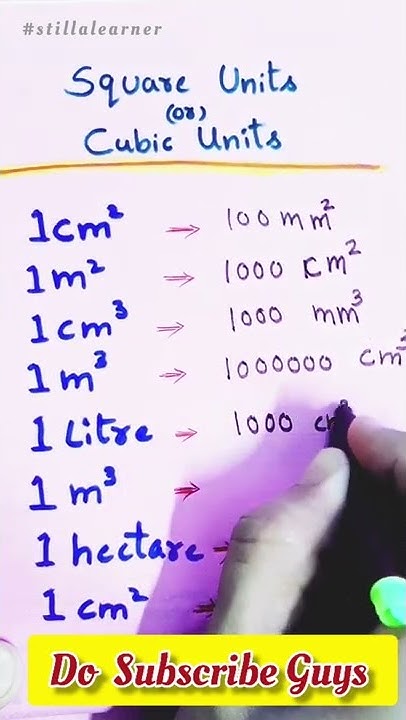 #stillalearner
Square Units
(or)
Cubic Units
1cm² → 100 mm²
1m² → 1000 cm²
1cm³ → 1000 mm³
1m³ → 1000000 cm³
1 Litre → 1000 cm³
1 m³ →
1 hectare →
1 cm² →
Do Subscribe Guys